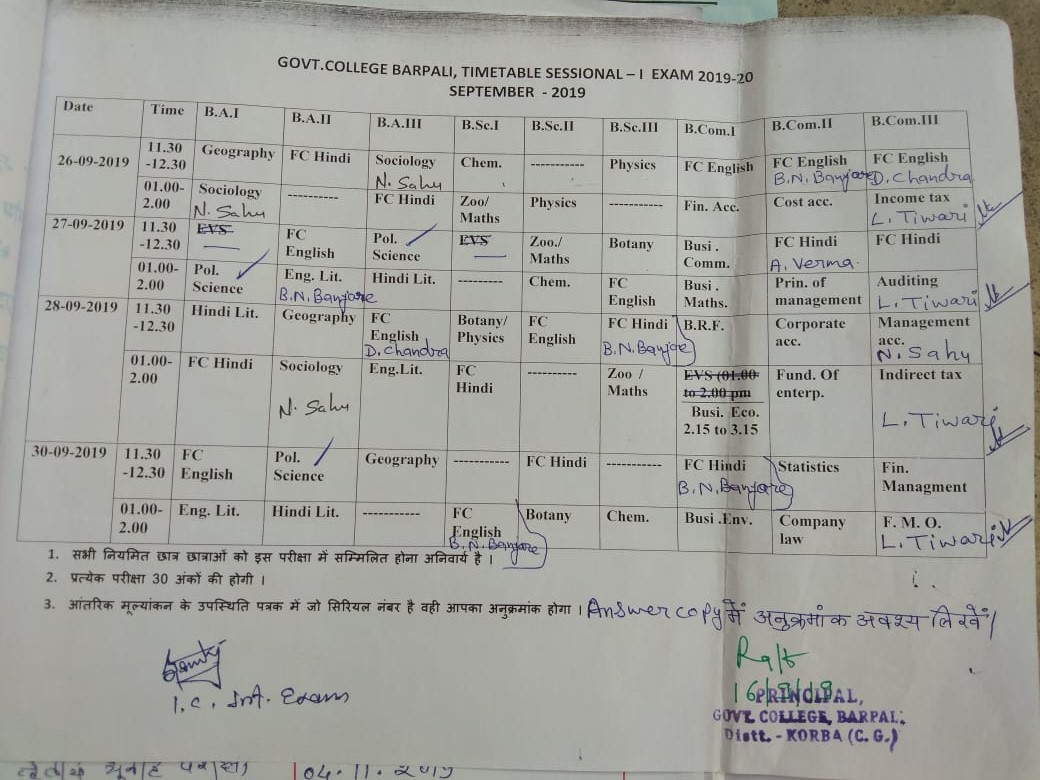 GOVT.COLLEGE BARPALI, TIMETABLE SESSIONAL – I EXAM 2019-20
SEPTEMBER - 2019
Date Time B.A.I B.A.II B.A.III B.Sc.I B.Sc.II B.Sc.III B.Com.I B.Com.II B.Com.III
26-09-2019 11.30 -12.30 Geography FC Hindi Sociology N. Sahu Chem. ---------- Physics FC English FC English B.N. Banjare FC English D. Chandra
01.00-2.00 Sociology N. Sahu ---------- FC Hindi Zoo/ Maths Physics ---------- Fin. Acc. Cost acc. Income tax L. Tiwari
27-09-2019 11.30 -12.30 EVS FC English Pol. Science EVS Zoo./ Maths Botany Busi . Comm. FC Hindi A. Verma. FC Hindi
01.00-2.00 Pol. Science Eng. Lit. B.N. Banjare Hindi Lit. --------- Chem. FC English Busi . Maths. Prin. of management Auditing L. Tiwari
28-09-2019 11.30 -12.30 Hindi Lit. Geography FC English D. Chandra Botany/ Physics FC English FC Hindi B.N. Banjare B.R.F. Corporate acc. Management acc. N. Sahu
01.00-2.00 FC Hindi Sociology N. Sahu Eng.Lit. FC Hindi ---------- Zoo / Maths EVS (01.00 to 2.00 pm Busi. Eco. 2.15 to 3.15 Fund. Of enterp. Indirect tax L. Tiwari
30-09-2019 11.30 -12.30 FC English Pol. Science Geography ----------- FC Hindi ----------- FC Hindi B.N. Banjare Statistics Fin. Managment
01.00-2.00 Eng. Lit. Hindi Lit. ----------- FC English B.N. Banjare Botany Chem. Busi .Env. Company law F. M. O. L. Tiwari
1. सभी नियमित छात्र छात्राओं को इस परीक्षा में सम्मिलित होना अनिवार्य है ।
2. प्रत्येक परीक्षा 30 अंकों की होगी ।
3. आंतरिक मूल्यांकन के उपस्थिति पत्रक में जो सिरियल नंबर है वही आपका अनुक्रमांक होगा । Answer copy में अनुक्रमांक अवश्य लिखें।
I.C. Int. Exam
16/9/19
PRINCIPAL,
GOVT. COLLEGE, BARPALI
Distt. - KORBA (C.G.)
04.11.2019